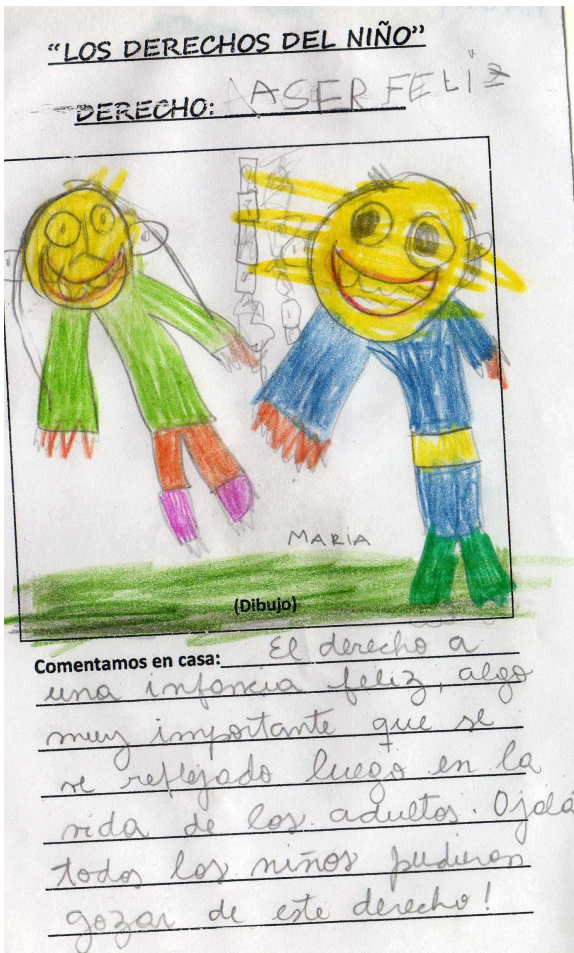 “LOS DERECHOS DEL NIÑO”
DERECHO: A SER FELIZ
MARIA
(Dibujo)
Comentamos en casa: El derecho a
una infancia feliz, algo
muy importante que se
ve reflejado luego en la
vida de los adultos. Ojalá
todos los niños pudieran
gozar de este derecho!